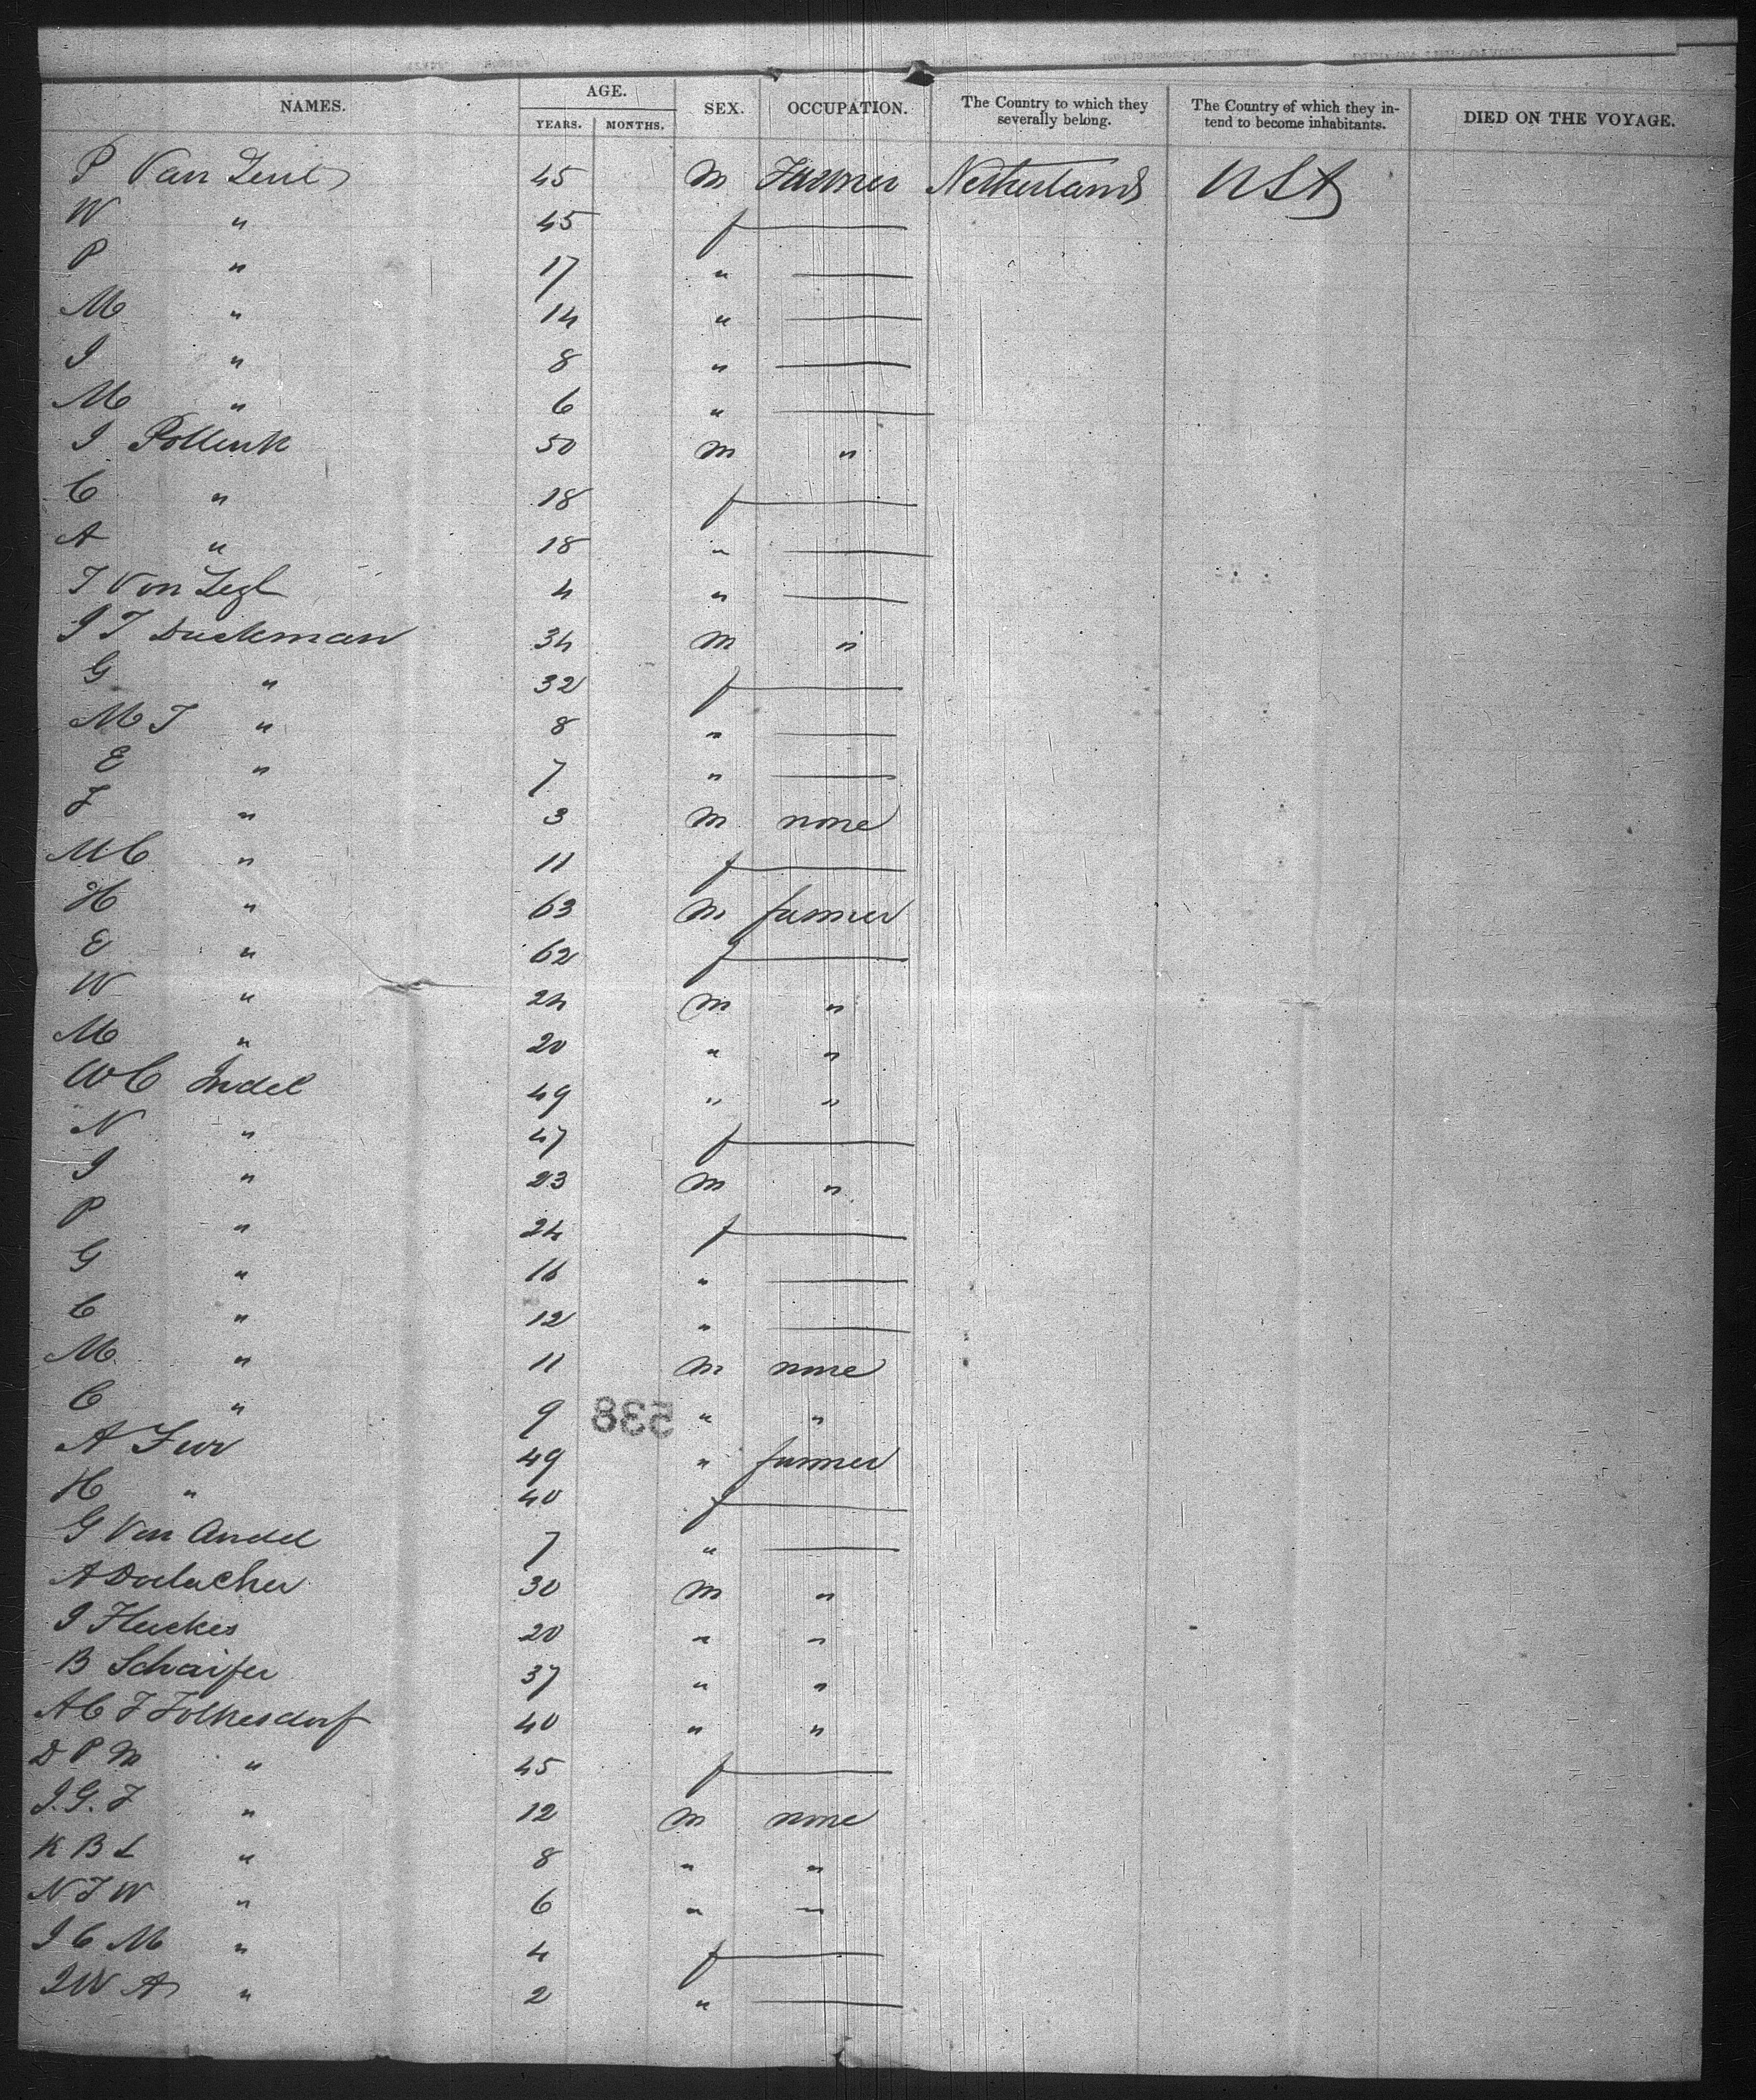 NAMES. AGE. SEX. OCCUPATION. The Country to which they severally belong. The Country of which they intend to become inhabitants. DIED ON THE VOYAGE.
YEARS. MONTHS.
P Van 45 m Farmer Netherlands USA
W " 45 f
P " 17 "
M " 14 "
I " 8 "
M " 6 "
I Pollenk 50 m "
C " 18 f
A " 18 "
T Von 4 "
I T Duckman 34 m "
G " 32 f
M T " 8 "
E " 7 "
J " 3 m none
M C " 11 f
H " 63 m farmer
E " 62 f
W " 24 m "
M " 20 " "
W C Indel 49 " "
N " 47 f
I " 23 m "
P " 24 f
G " 16 "
C " 12 "
M " 11 m none
C " 9 " "
538
A 49 " farmer
H " 40 f
G Van Andel 7 "
A 30 m "
I 20 " "
B Schaifer 37 " "
A C J Folkesdorf 40 " "
D P M " 45 f
I. G. J " 12 m none
K B L " 8 " "
N J W " 6 " "
I C M " 4 f
I W A " 2 "